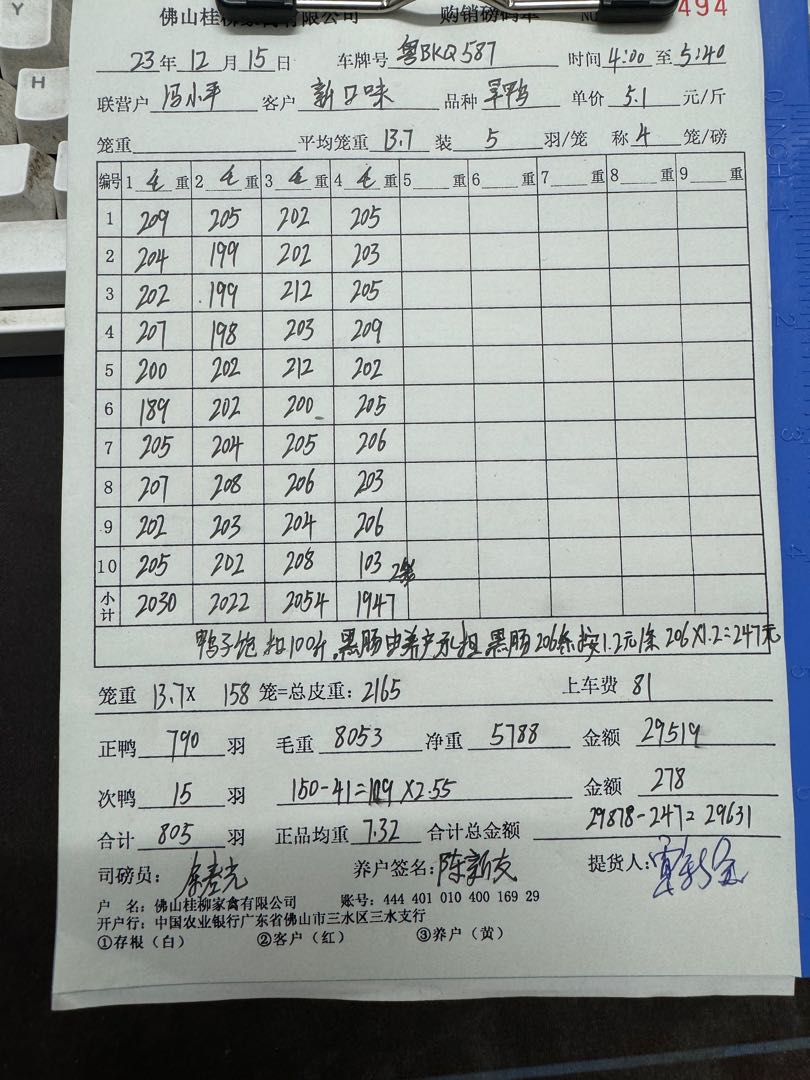 佛山桂柳家禽有限公司 购销磅码单 NO 494
23年12月15日 车牌号 粤BKQ587 时间 4:00 至 5:40
联营户 冯小平 客户 新口味 品种 旱鸭 单价 5.1 元/斤
笼重 平均笼重 13.7 装 5 羽/笼 称 4 笼/磅
编号 1 毛 重 2 毛 重 3 毛 重 4 毛 重 5 重 6 重 7 重 8 重 9 重
1 209 205 202 205
2 204 199 202 203
3 202 199 212 205
4 207 198 203 209
5 200 202 212 202
6 189 202 200 205
7 205 204 205 206
8 207 208 206 203
9 202 203 204 206
10 205 202 208 103 2笼
小计 2030 2022 2054 1947
鸭子饱 扣100斤,黑肠由养户承担 黑肠206条按1.2元/条 206X1.2=247元
笼重 13.7X 158 笼=总皮重:2165 上车费 81
正鸭 790 羽 毛重 8053 净重 5788 金额 29519
次鸭 15 羽 150-41=109X2.55 金额 278
合计 805 羽 正品均重 7.32 合计总金额 29878-247=29631
司磅员: 养户签名:陈新友 提货人:
户 名:佛山桂柳家禽有限公司 账号:444 401 010 400 169 29
开户行:中国农业银行广东省佛山市三水区三水支行
①存根(白) ②客户(红) ③养户(黄)
Y
H
0 INCH 1
2
3
4
5